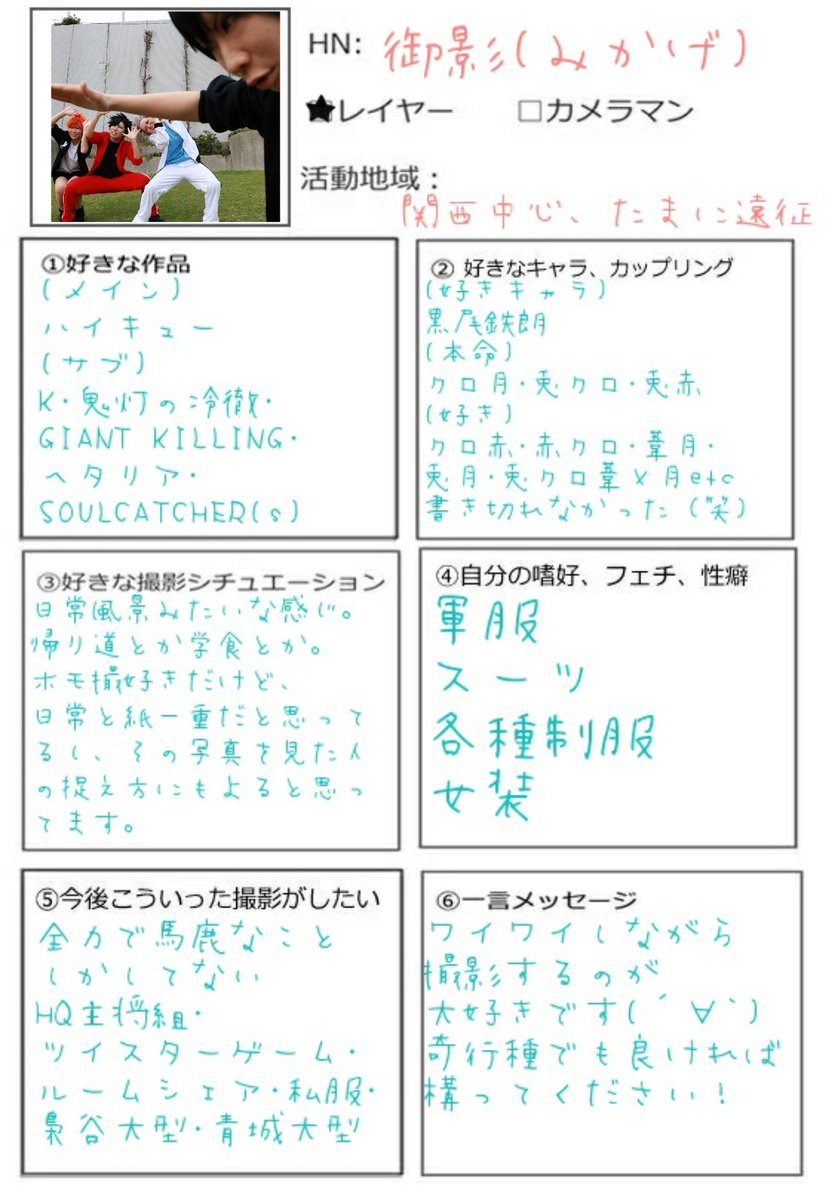 HN: 御影(みかげ)
★レイヤー □カメラマン
活動地域：
関西中心、たまに遠征
①好きな作品
(メイン)
ハイキュー
(サブ)
K・鬼灯の冷徹・
GIANT KILLING・
ヘタリア・
SOULCATCHER(s)
② 好きなキャラ、カップリング
(好きキャラ)
黒尾鉄朗
(本命)
クロ月・兎クロ・兎赤
(好き)
クロ赤・赤クロ・葦月・
兎月・兎クロ葦×月etc
書き切れなかった(笑)
③好きな撮影シチュエーション
日常風景みたいな感じ。
帰り道とか学食とか。
ホモ撮好きだけど、
日常と紙一重だと思って
るし、その写真を見た人
の捉え方にもよると思っ
てます。
④自分の嗜好、フェチ、性癖
軍服
スーツ
各種制服
女装
⑤今後こういった撮影がしたい
全力で馬鹿なこと
しかしてない
HQ主将組・
ツイスターゲーム・
ルームシェア・私服・
梟谷大型・青城大型
⑥一言メッセージ
ワイワイしながら
撮影するのが
大好きです(´∀`)
奇行種でも良ければ
構ってください！